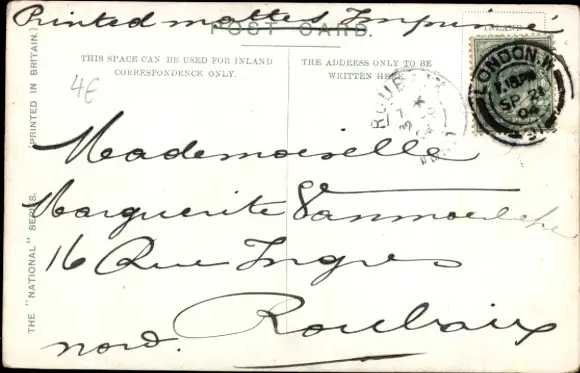 Printed mattes Imprimé
POST CARD.
INLAND
THIS SPACE CAN BE USED FOR INLAND
CORRESPONDENCE ONLY.
THE ADDRESS ONLY TO BE
WRITTEN HE
4€
ROUBAIX
LONDON.W
7.15PM
SP 21
04
Mademoiselle
Marguerite
16 Rue Ingres
Roubaix
nord.
THE "NATIONAL" SERIES.
PRINTED IN BRITAIN.